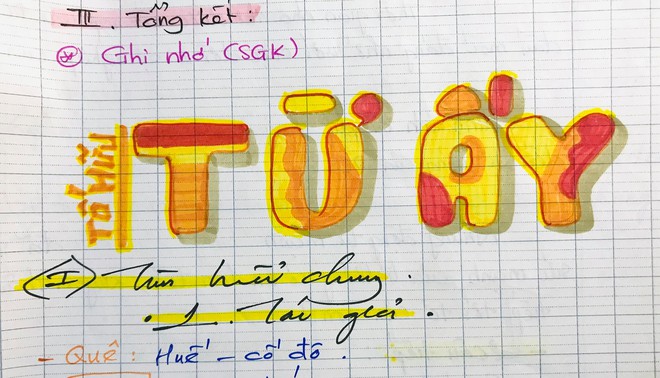 III. Tổng kết:
* Ghi nhớ (SGK)
TỐ HỮU
TỪ ẤY
I Tìm hiểu chung.
. 1. Tác giả.
- Quê: Huế - cố đô.